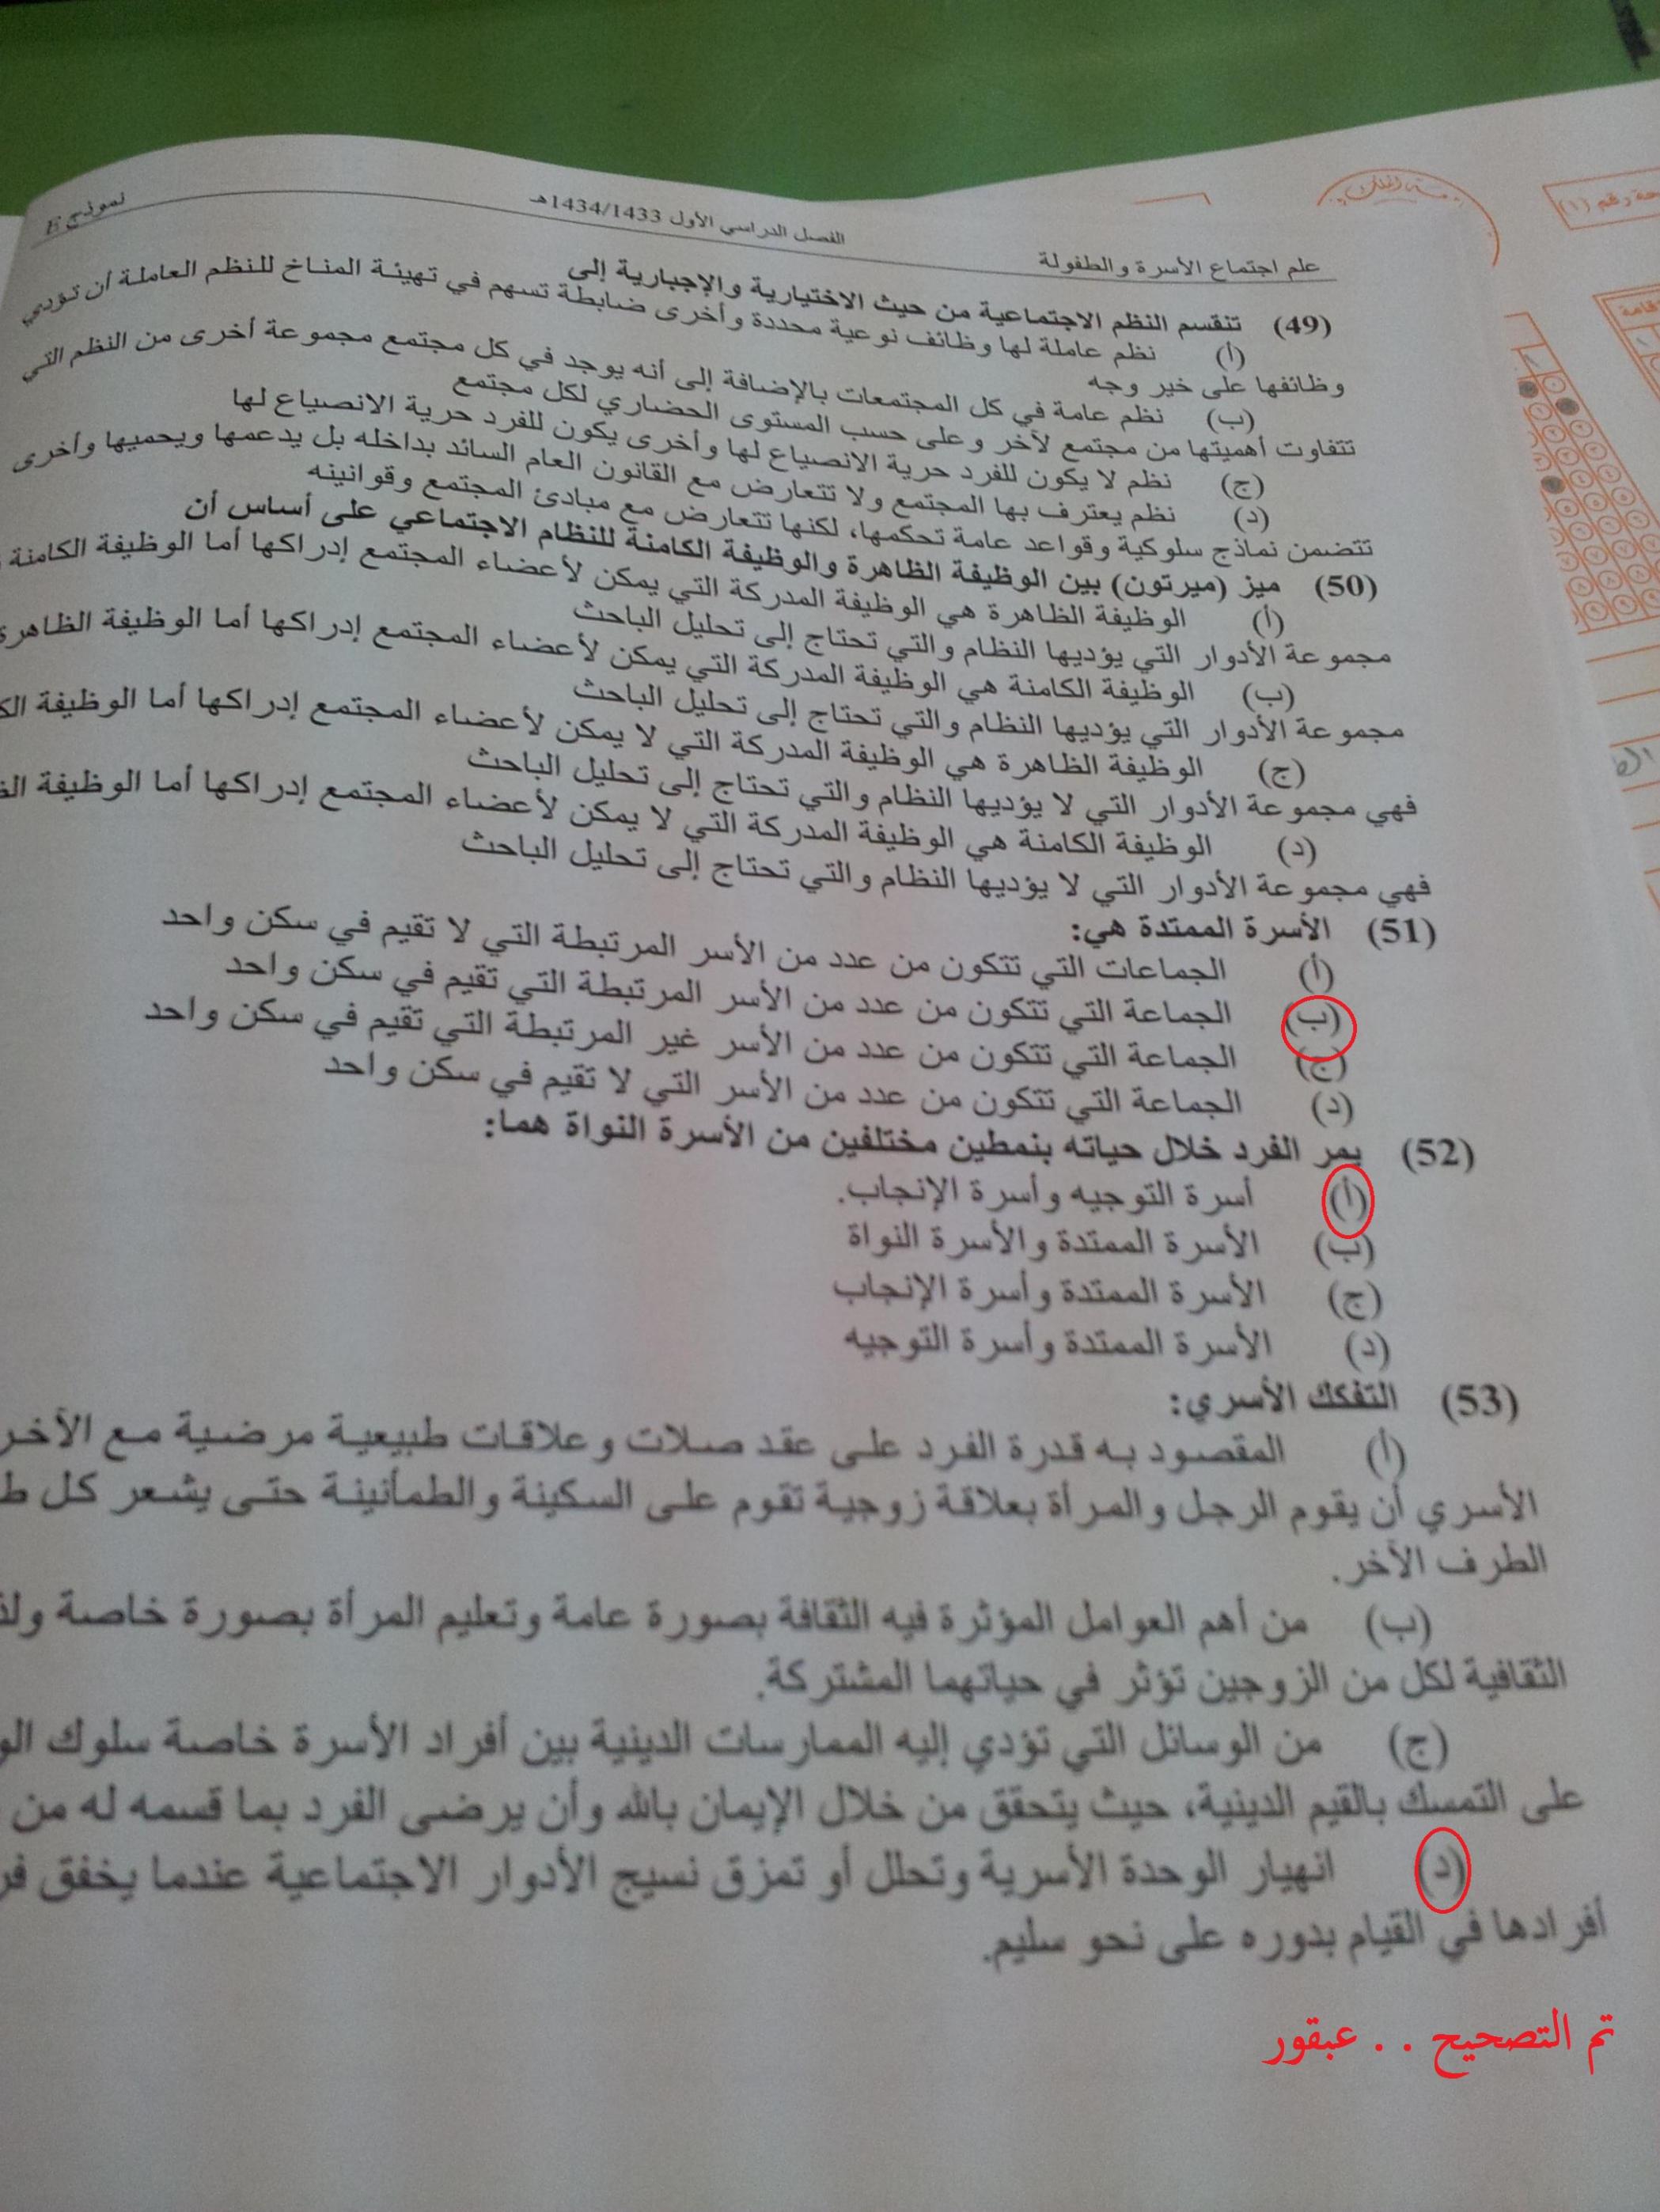 علم اجتماع الأسرة والطفولة
الفصل الدراسي الأول 1434/1433هـ
نموذج E
(49) تنقسم النظم الاجتماعية من حيث الاختيارية والإجبارية إلى
(أ) نظم عاملة لها وظائف نوعية محددة وأخرى ضابطة تسهم في تهيئة المناخ للنظم العاملة أن تؤدي
وظائفها على خير وجه
(ب) نظم عامة في كل المجتمعات بالإضافة إلى أنه يوجد في كل مجتمع مجموعة أخرى من النظم التي
تتفاوت أهميتها من مجتمع لآخر وعلى حسب المستوى الحضاري لكل مجتمع
(ج) نظم لا يكون للفرد حرية الانصياع لها وأخرى يكون للفرد حرية الانصياع لها
(د) نظم يعترف بها المجتمع ولا تتعارض مع القانون العام السائد بداخله بل يدعمها ويحميها وأخرى
تتضمن نماذج سلوكية وقواعد عامة تحكمها، لكنها تتعارض مع مبادئ المجتمع وقوانينه
(50) ميز (ميرتون) بين الوظيفة الظاهرة والوظيفة الكامنة للنظام الاجتماعي على أساس أن
(أ) الوظيفة الظاهرة هي الوظيفة المدركة التي يمكن لأعضاء المجتمع إدراكها أما الوظيفة الكامنة
مجموعة الأدوار التي يؤديها النظام والتي تحتاج إلى تحليل الباحث
(ب) الوظيفة الكامنة هي الوظيفة المدركة التي يمكن لأعضاء المجتمع إدراكها أما الوظيفة
مجموعة الأدوار التي يؤديها النظام والتي تحتاج إلى تحليل الباحث
(ج) الوظيفة الظاهرة هي الوظيفة المدركة التي لا يمكن لأعضاء المجتمع إدراكها أما الوظيفة
فهي مجموعة الأدوار التي لا يؤديها النظام والتي تحتاج إلى تحليل الباحث
(د) الوظيفة الكامنة هي الوظيفة المدركة التي لا يمكن لأعضاء المجتمع إدراكها أما الوظيفة
فهي مجموعة الأدوار التي لا يؤديها النظام والتي تحتاج إلى تحليل الباحث
(51) الأسرة الممتدة هي:
(أ) الجماعات التي تتكون من عدد من الأسر المرتبطة التي لا تقيم في سكن واحد
(ب) الجماعة التي تتكون من عدد من الأسر المرتبطة التي تقيم في سكن واحد
(ج) الجماعة التي تتكون من عدد من الأسر غير المرتبطة التي تقيم في سكن واحد
(د) الجماعة التي تتكون من عدد من الأسر التي لا تقيم في سكن واحد
(52) يمر الفرد خلال حياته بنمطين مختلفين من الأسرة النواة هما:
(أ) أسرة التوجيه وأسرة الإنجاب.
(ب) الأسرة الممتدة والأسرة النواة
(ج) الأسرة الممتدة وأسرة الإنجاب
(د) الأسرة الممتدة وأسرة التوجيه
(53) التفكك الأسري:
(أ) المقصود به قدرة الفرد على عقد صلات وعلاقات طبيعية مرضية مع
الأسري أن يقوم الرجل والمرأة بعلاقة زوجية تقوم على السكينة والطمأنينة حتى يشعر كل
الطرف الآخر.
(ب) من أهم العوامل المؤثرة فيه الثقافة بصورة عامة وتعليم المرأة بصورة خاصة
الثقافية لكل من الزوجين تؤثر في حياتهما المشتركة.
(ج) من الوسائل التي تؤدي إليه الممارسات الدينية بين أفراد الأسرة خاصة سلوك
على التمسك بالقيم الدينية، حيث يتحقق من خلال الإيمان بالله وأن يرضى الفرد بما قسمه له من
(د) انهيار الوحدة الأسرية وتحلل أو تمزق نسيج الأدوار الاجتماعية عندما يخفق
أفرادها في القيام بدوره على نحو سليم.
تم التصحيح . . عبقور